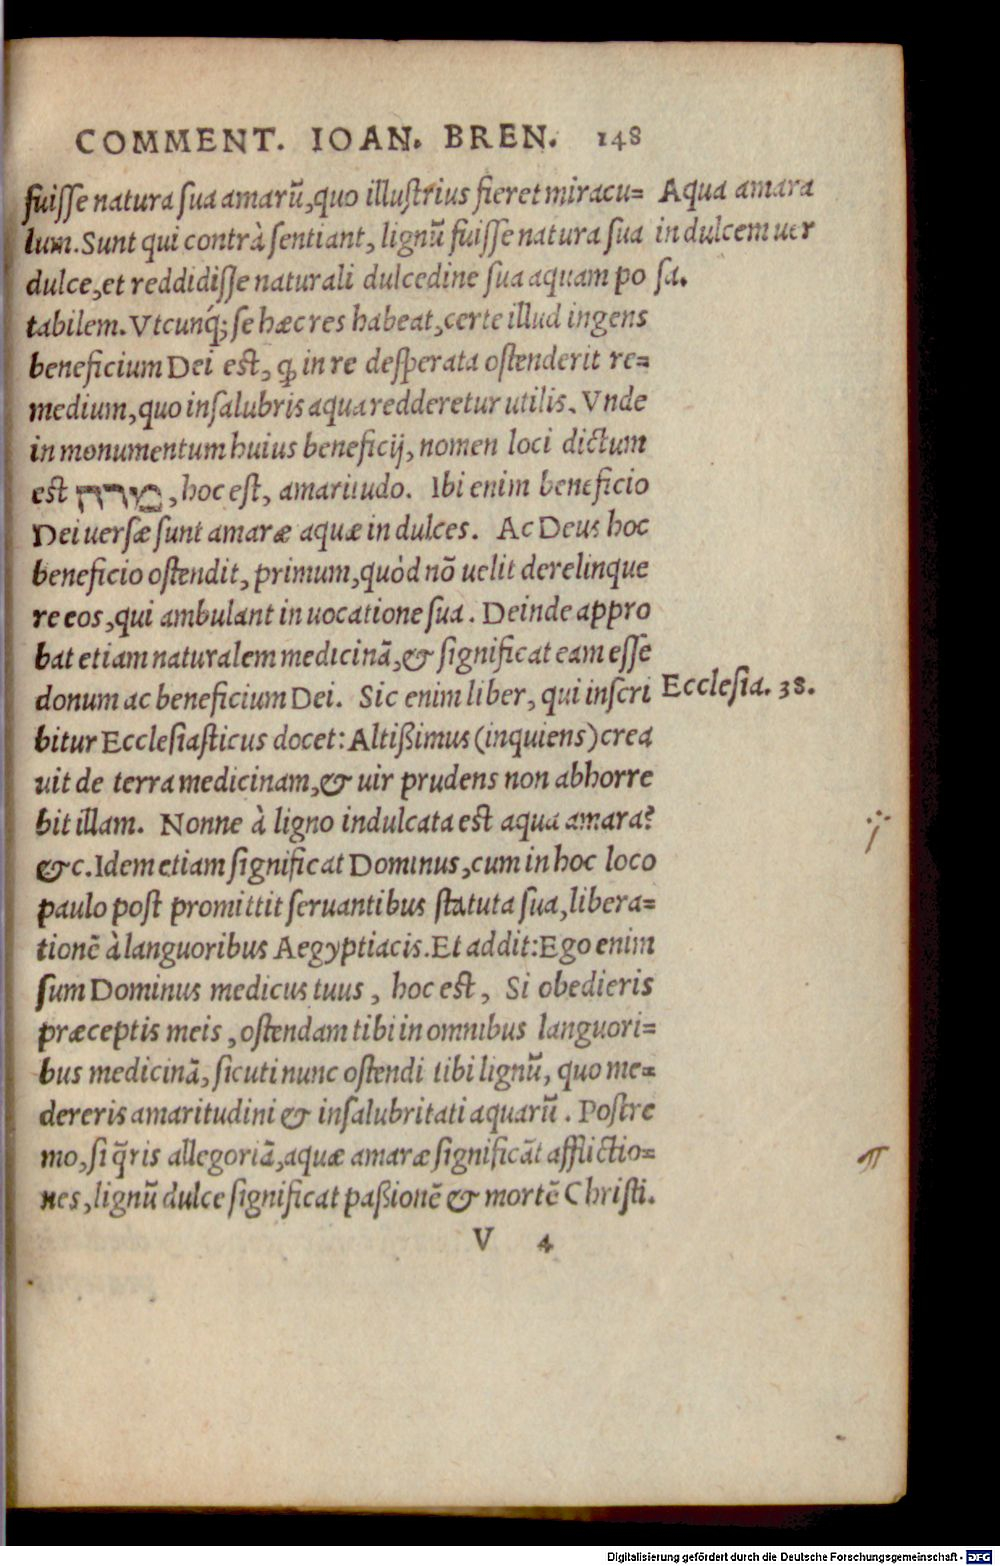 COMMENT. IOAN. BREN. 148
fuiſſe natura ſua amarũ, quo illuſtrius fieret miracu=
lum. Sunt qui contrà ſentiant, lignũ fuiſſe natura ſua
dulce, et reddidiſſe naturali dulcedine ſua aquam po
tabilem. Vtcunq́; ſe hæc res habeat, certe illud ingens
beneficium Dei est, ꝙ in re deſperata oſtenderit re=
medium, quo inſalubris aqua redderetur utilis. Vnde
in monumentum huius beneficij, nomen loci dictum
est מרה, hoc eſt, amaritudo. Ibi enim beneficio
Dei uerſæ ſunt amaræ aquæ in dulces. Ac Deus hoc
beneficio oſtendit, primum, quòd nõ uelit derelinque
re eos, qui ambulant in uocatione ſua. Deinde appro
bat etiam naturalem medicinã, & significat eam eſſe
donum ac beneficium Dei. Sic enim liber, qui inſcri
bitur Eccleſiaſticus docet: Altißimus (inquiens) crea
uit de terra medicinam, & uir prudens non abhorre
bit illam. Nonne à ligno indulcata est aqua amara?
&c. Idem etiam ſignificat Dominus, cum in hoc loco
paulo poſt promittit ſeruantibus ſtatuta ſua, libera=
tionẽ à languoribus Aegyptiacis. Et addit: Ego enim
ſum Dominus medicus tuus, hoc est, Si obedieris
præceptis meis, oſtendam tibi in omnibus languori=
bus medicinã, ſicuti nunc oſtendi tibi lignũ, quo me=
dereris amaritudini & inſalubritati aquarũ. Poſtre
mo, ſi q̃ris allegoriã, aquæ amaræ ſignificãt afflictio=
nes, lignũ dulce ſignificat paßionẽ & mortẽ Chriſti.
V 4
Aqua amara
in dulcem uer
ſa.
Eccleſia. 38.
Digitalisierung gefördert durch die Deutsche Forschungsgemeinschaft - DFG